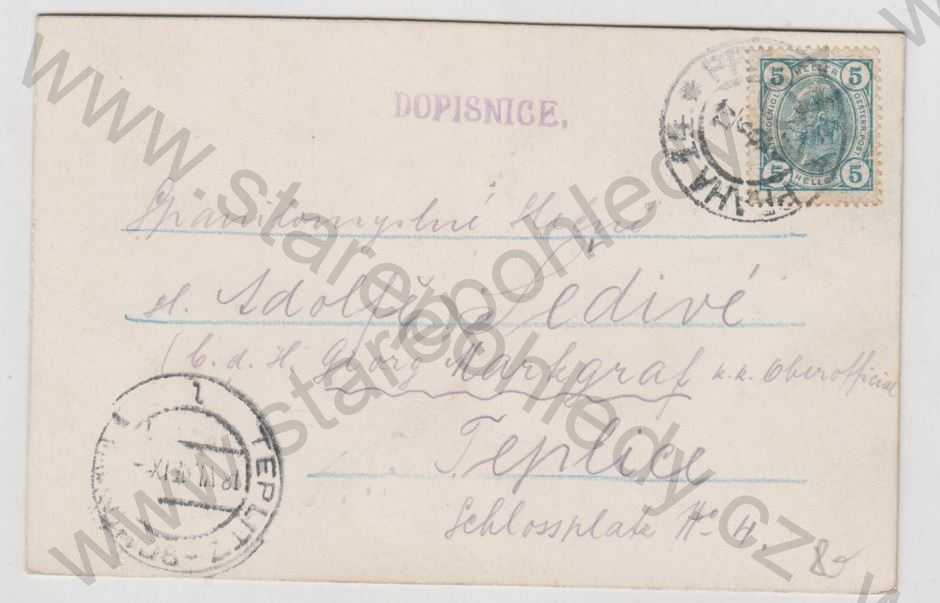 DOPISNICE,
PRAHA
5 5
HELLER
5 5
HELLER
sl. Adolfě Šedivé
(b. d. H. Georg Markgraf k. k. Oberofficial
Teplice
Schlossplatz No 4.
TEPLITZ-SCH
1
80
www.starepohledy.cz